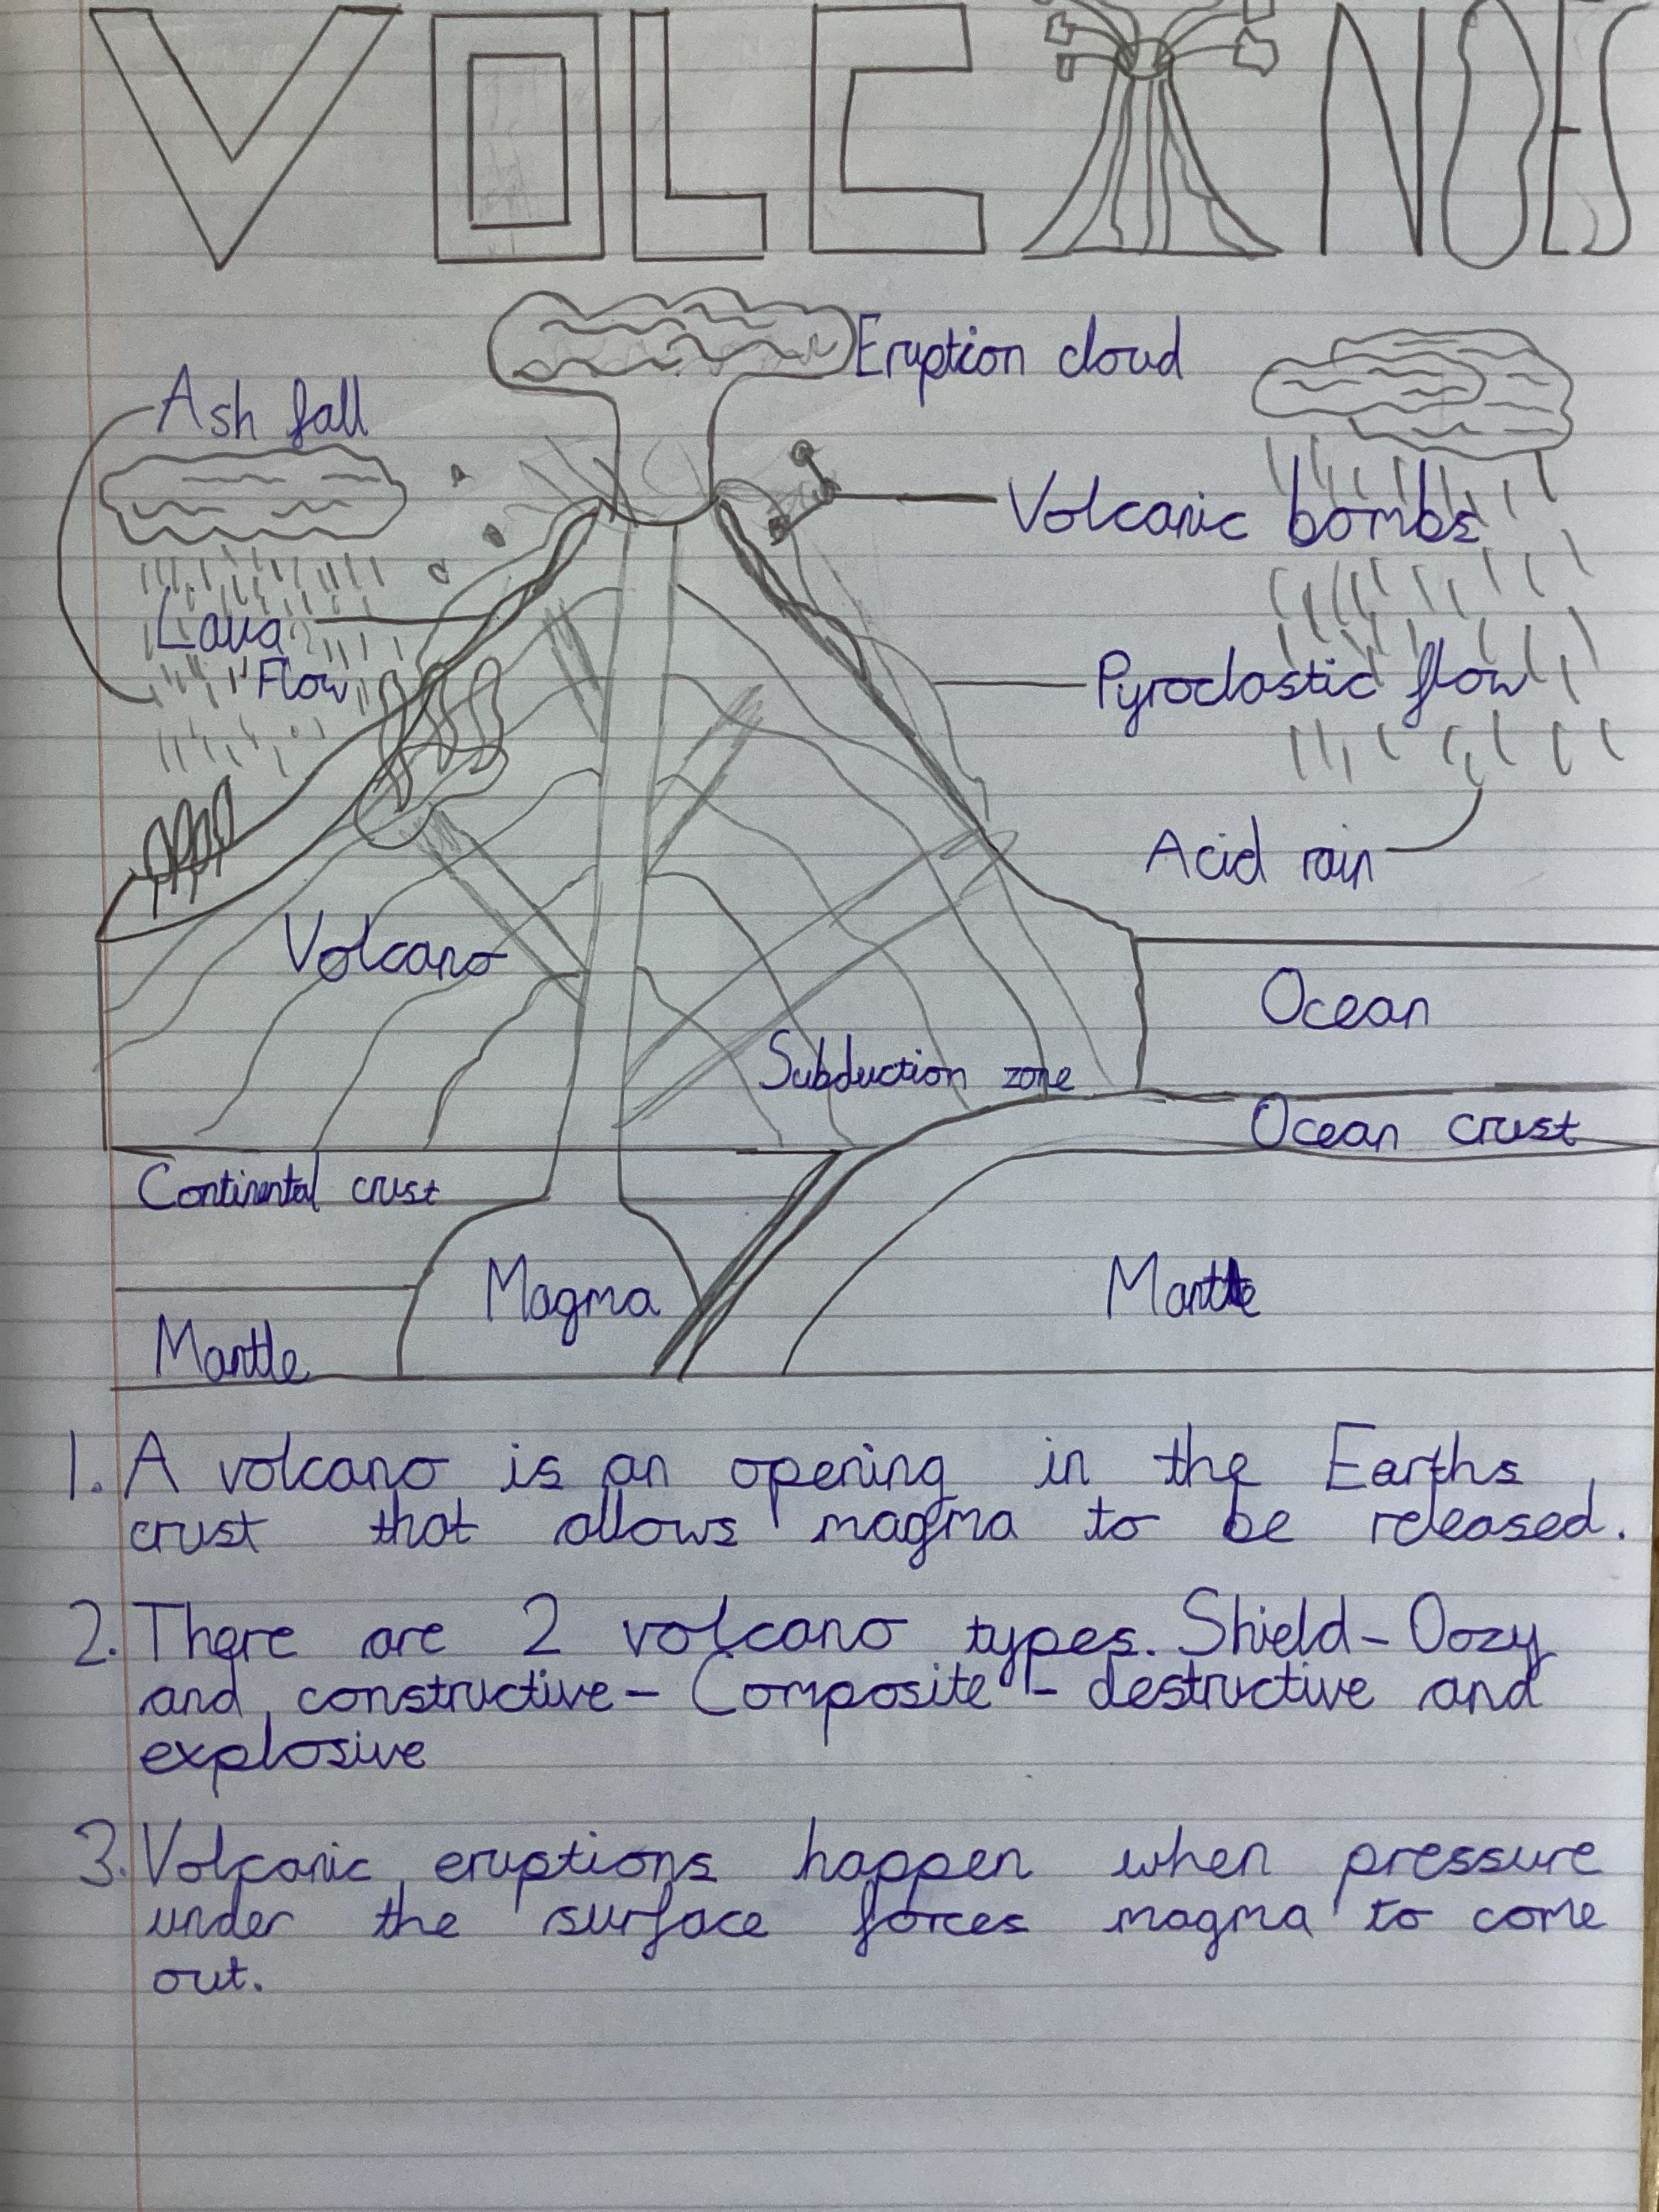 VOLCANOES
Eruption cloud
Ash fall
Volcanic bombs
Lava
Flow
Pyroclastic flow
Acid rain
Volcano
Ocean
Subduction zone
Ocean crust
Continental crust
Magma
Mantle
Mantle
1. A volcano is an opening in the Earths
crust that allows magma to be released.
2. There are 2 volcano types. Shield - Oozy
and constructive - Composite - destructive and
explosive
3. Volcanic eruptions happen when pressure
under the surface forces magma to come
out.